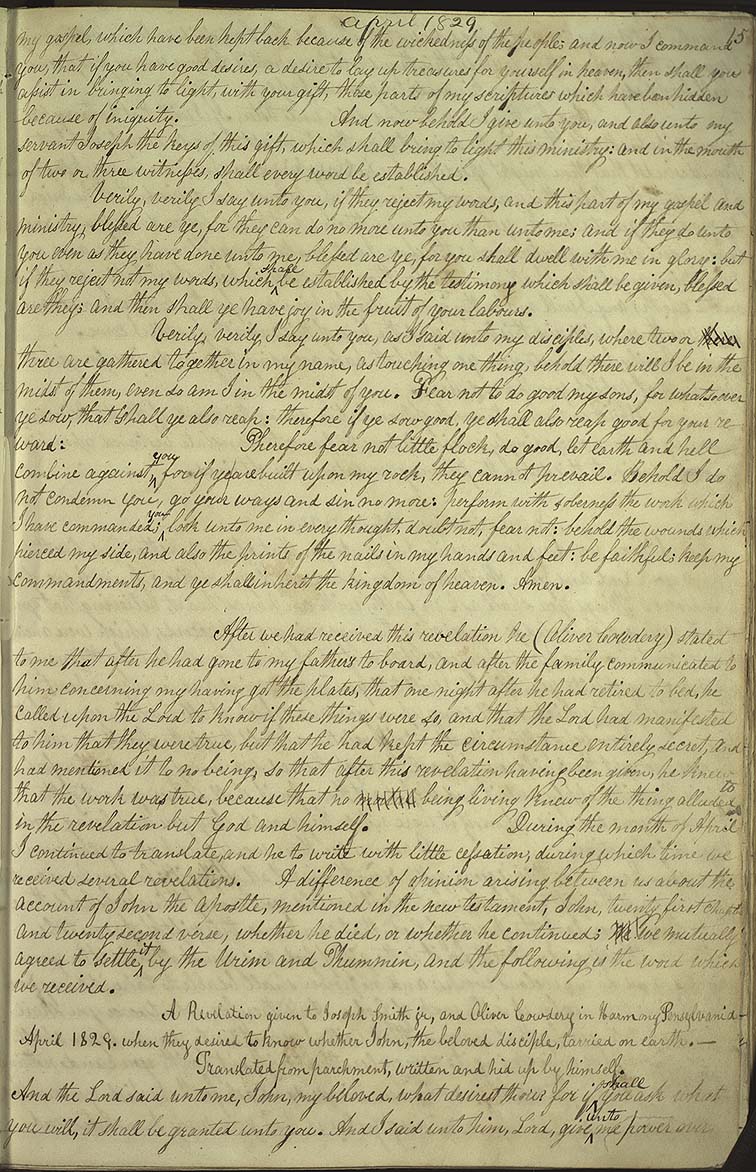 April 1829
15
my gospel, which have been kept back because of the wickedness of the people; and now I command
you, that if you have good desires, a desire to lay up treasures for yourself in heaven, then shall you
assist in bringing to light, with your gift, those parts of my scriptures which have been hidden
because of iniquity. And now behold I give unto you, and also unto my
servant Joseph the keys of this gift, which shall bring to light this ministry: and in the mouth
of two or three witnesses, shall every word be established.
Verily, verily I say unto you, if they reject my words, and this part of my gospel and
ministry, blessed are ye, for they can do no more unto you than unto me: and if they do unto
you even as they have done unto me, blessed are ye, for you shall dwell with me in glory: but
if they reject not my words, which shall be established by the testimony which shall be given, blessed
are they; and then shall ye have joy in the fruit of your labours.
Verily, verily, I say unto you, as I said unto my disciples, where two or
three are gathered together in my name, as touching one thing, behold there will I be in the
midst of them, even so am I in the midst of you. Fear not to do good my sons, for whatsoever
ye sow, that shall ye also reap: therefore if ye sow good, ye shall also reap good for your re-
ward: Therefore fear not little flock, do good, let earth and hell
combine against you, for if ye are built upon my rock, they cannot prevail. Behold I do
not condemn you, go your ways and sin no more: perform with soberness the work which
I have commanded you; look unto me in every thought, doubt not, fear not: behold the wounds which
pierced my side, and also the prints of the nails in my hands and feet: be faithful; keep my
commandments, and ye shall inherit the kingdom of heaven. Amen.
After we had received this revelation he (Oliver Cowdery) stated
to me that after he had gone to my fathers to board, and after the family communicated to
him concerning my having got the plates, that one night after he had retired to bed, he
called upon the Lord to know if these things were so, and that the Lord had manifested
to him that they were true, but that he had kept the circumstance entirely secret, and
had mentioned it to no being, so that after this revelation having been given, he knew
that the work was true, because that no being living knew of the thing alluded to
in the revelation but God and himself. During the month of April
I continued to translate, and he to write with little cessation, during which time we
received several revelations. A difference of opinion arising between us about the
account of John the Apostle, mentioned in the new testament, John, twenty first chapter
and twenty second verse, whether he died, or whether he continued; we mutually
agreed to settle it by the Urim and Thummin, and the following is the word which
we received.
A Revelation given to Joseph Smith jr, and Oliver Cowdery in Harmony Pensylvania
April 1829. when they desired to know whether John, the beloved disciple, tarried on earth.—
Translated from parchment, written and hid up by himself.
And the Lord said unto me, John, my beloved, what desirest thou? for if you shall ask what
you will, it shall be granted unto you. And I said unto him, Lord, give unto me power over